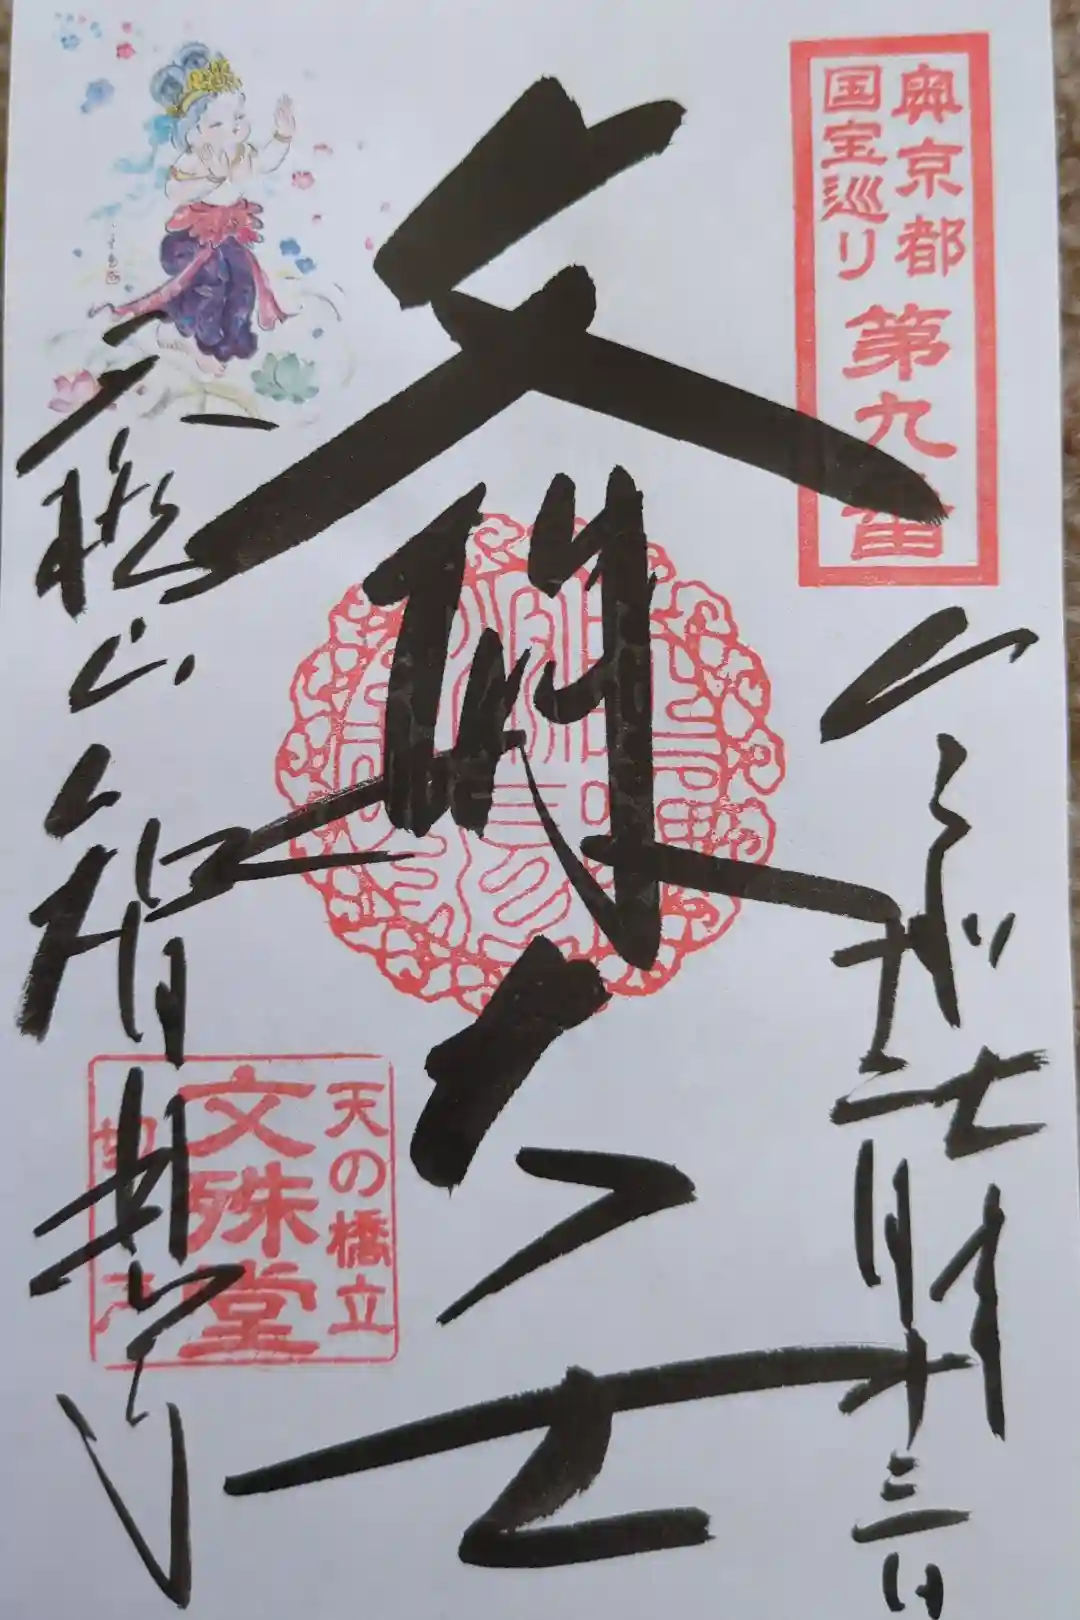 奥京都
国宝巡り
第九番
令和七年
十二月十三日
文殊大士
天橋山 智恩寺
天の橋立
文殊堂
切戸